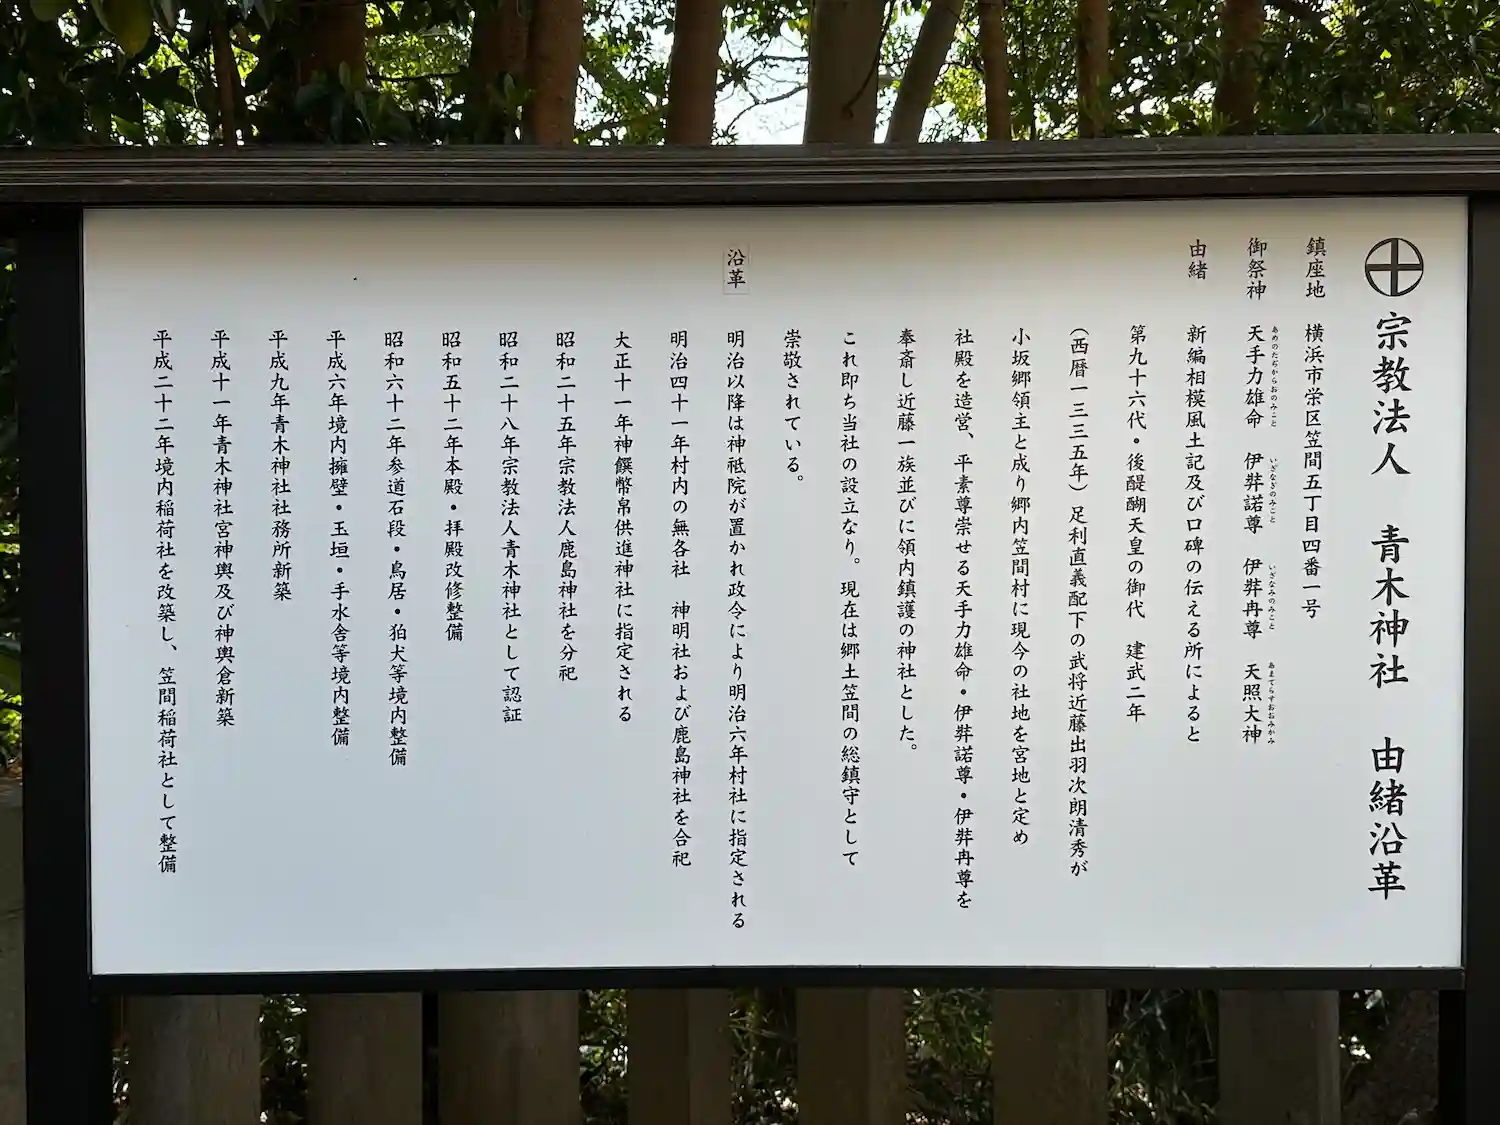 宗教法人　青木神社　由緒沿革
鎮座地　横浜市栄区笠間五丁目四番一号
御祭神　天手力雄命　伊弉諾尊　伊弉冉尊　天照大神
あめのたぢからおのみこと　いざなぎのみこと　いざなみのみこと　あまてらすおおみかみ
由緒　新編相模風土記及び口碑の伝える所によると
第九十六代・後醍醐天皇の御代　建武二年
（西暦一三三五年）足利直義配下の武将近藤出羽次朗清秀が
小坂郷領主と成り郷内笠間村に現今の社地を宮地と定め
社殿を造営、平素尊崇せる天手力雄命・伊弉諾尊・伊弉冉尊を
奉斎し近藤一族並びに領内鎮護の神社とした。
これ即ち当社の設立なり。現在は郷土笠間の総鎮守として
崇敬されている。
沿革　明治以降は神祇院が置かれ政令により明治六年村社に指定される
明治四十一年村内の無各社　神明社および鹿島神社を合祀
大正十一年神饌幣帛供進神社に指定される
昭和二十五年宗教法人鹿島神社を分祀
昭和二十八年宗教法人青木神社として認証
昭和五十二年本殿・拝殿改修整備
昭和六十二年参道石段・鳥居・狛犬等境内整備
平成六年境内擁壁・玉垣・手水舎等境内整備
平成九年青木神社社務所新築
平成十一年青木神社宮神輿及び神輿倉新築
平成二十二年境内稲荷社を改築し、笠間稲荷社として整備